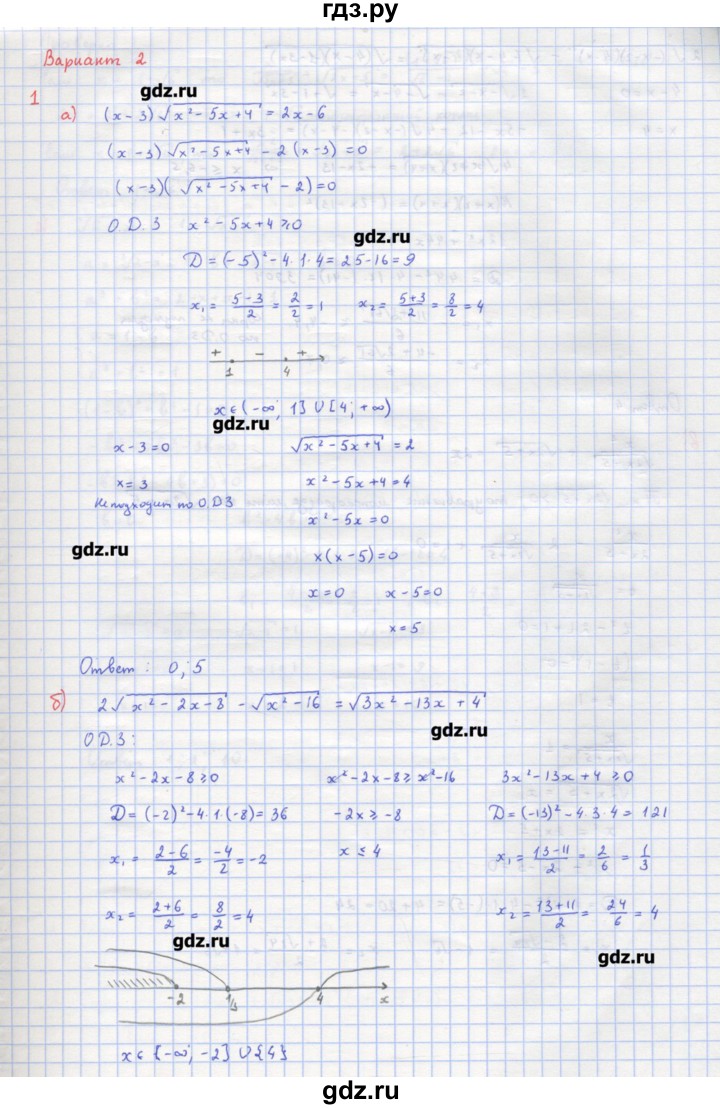 гдз.ру
Вариант 2
gdz.ru
1
а) (x-3)√(x²-5x+4) = 2x-6
(x-3)√(x²-5x+4) - 2(x-3) = 0
(x-3)(√(x²-5x+4) - 2) = 0
О.Д.З x²-5x+4≥0
gdz.ru
D = (-5)²-4·1·4 = 25-16 = 9
x₁ = (5-3)/2 = 2/2 = 1 x₂ = (5+3)/2 = 8/2 = 4
+ - +
1 4
x∈(-∞; 1]∪[4; +∞)
gdz.ru
x-3=0 √(x²-5x+4) = 2
x=3 x²-5x+4=4
Не подходит по О.ДЗ
x²-5x=0
gdz.ru
x(x-5)=0
x=0 x-5=0
x=5
Ответ: 0; 5
б) 2√(x²-2x-8) - √(x²-16) = √(3x²-13x+4)
gdz.ru
ОД.З:
x²-2x-8≥0 x²-2x-8≥x²-16 3x²-13x+4≥0
D=(-2)²-4·1·(-8)=36 -2x≥-8 D=(-13)²-4·3·4=121
x₁ = (2-6)/2 = -4/2 = -2 x≤4 x₁ = (13-11)/2 = 2/6 = 1/3
x₂ = (2+6)/2 = 8/2 = 4 x₂ = (13+11)/2 = 24/6 = 4
gdz.ru
gdz.ru
-2 1/3 4 x
x∈{-∞; -2]∪{4}
gdz.ru